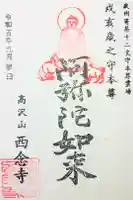 武州寄居十二支守本尊霊場
戌亥歳之守本尊
阿彌陀如来
高沢山 西念寺
令和 年 月 日